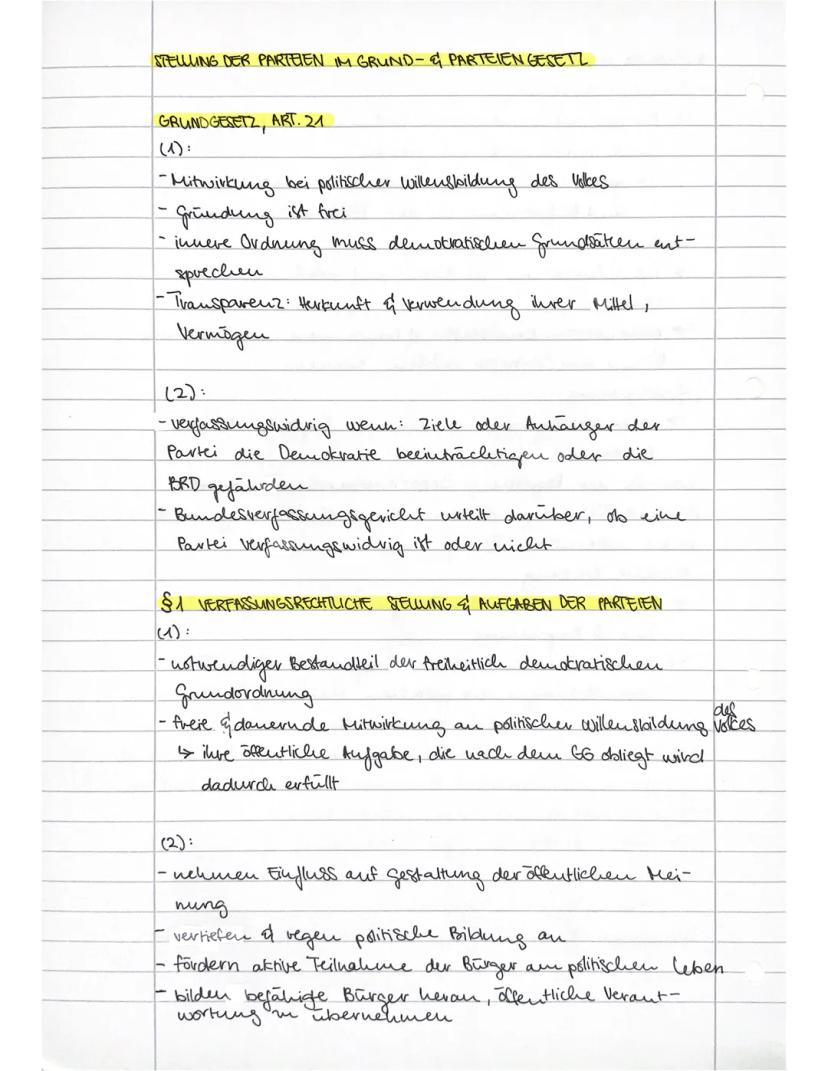 STELLUNG DER PARTEIEN IM GRUND- & PARTEIENGESETZ
GRUNDGESETZ, ART. 21
(1):
- Mitwirkung bei politischer Willensbildung des Volkes
- Gründung ist frei
- innere Ordnung muss demokratischen Grundsätzen ent-
sprechen
- Transparenz: Herkunft & Verwendung ihrer Mittel,
Vermögen
(2):
- verfassungswidrig wenn: Ziele oder Anhänger der
Partei die Demokratie beeinträchtigen oder die
BRD gefährden
- Bundesverfassungsgericht urteilt darüber, ob eine
Partei verfassungswidrig ist oder nicht
§1 VERFASSUNGSRECHTLICHE STELLUNG & AUFGABEN DER PARTEIEN
(1):
- notwendiger Bestandteil der freiheitlich demokratischen
Grundordnung
- freie & dauernde Mitwirkung an politischer Willensbildung des Volkes
↳ ihre öffentliche Aufgabe, die nach dem GG obliegt wird
dadurch erfüllt
(2):
- nehmen Einfluss auf Gestaltung der öffentlichen Mei-
nung
- vertiefen & regen politische Bildung an
- fördern aktive Teilnahme der Bürger am politischen Leben
- bilden befähigte Bürger heran, öffentliche Verant-
wortung zu übernehmen